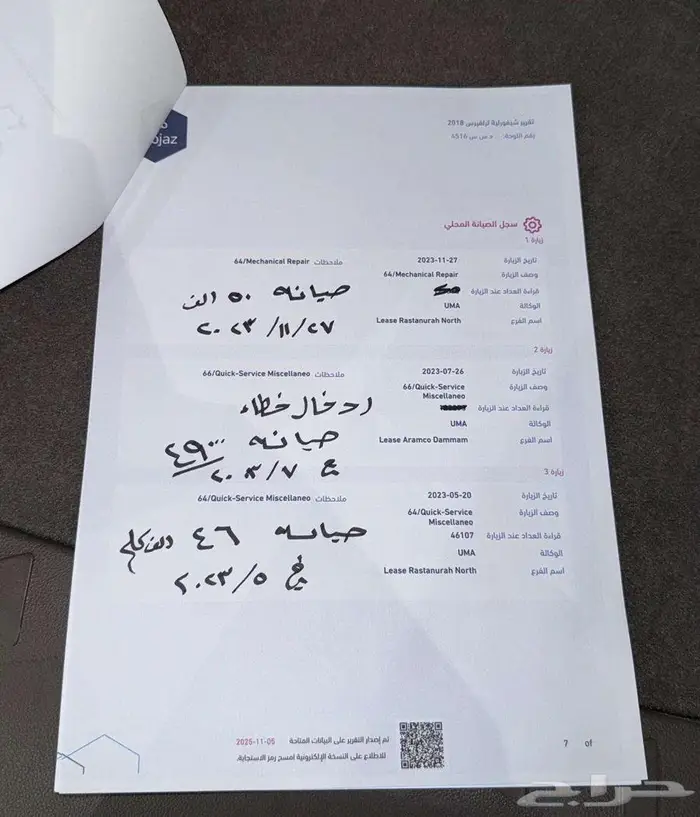 ojaz
تقرير شيفورلية ترافيرس 2018
رقم اللوحة: د س س 4516
سجل الصيانة المحلي
زيارة 1
تاريخ الزيارة 2023-11-27 ملاحظات 64/Mechanical Repair
وصف الزيارة 64/Mechanical Repair
قراءة العداد عند الزيارة
صيانه ٥٠ الف
الوكالة UMA
اسم الفرع Lease Rastanurah North
٢٠٢٣/١١/٢٧
زيارة 2
تاريخ الزيارة 2023-07-26 ملاحظات 66/Quick-Service Miscellaneo
وصف الزيارة 66/Quick-Service Miscellaneo
قراءة العداد عند الزيارة
ادخال خطاء
الوكالة UMA
اسم الفرع Lease Aramco Dammam
صيانه ٤٩٠٠٠
زيارة 3
تاريخ الزيارة 2023-05-20 ملاحظات 64/Quick-Service Miscellaneo
وصف الزيارة 64/Quick-Service Miscellaneo
قراءة العداد عند الزيارة 46107
صيانه ٤٦ الف كلم
الوكالة UMA
اسم الفرع Lease Rastanurah North
في ٢٠٢٣/٥
تم إصدار التقرير على البيانات المتاحة 2025-11-05
للاطلاع على النسخة الإلكترونية امسح رمز الاستجابة.
7 of
حراج